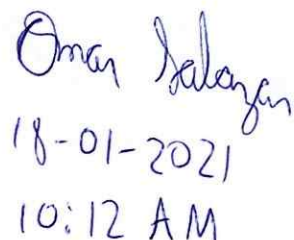 Omar Salazar
18-01-2021
10:12 AM